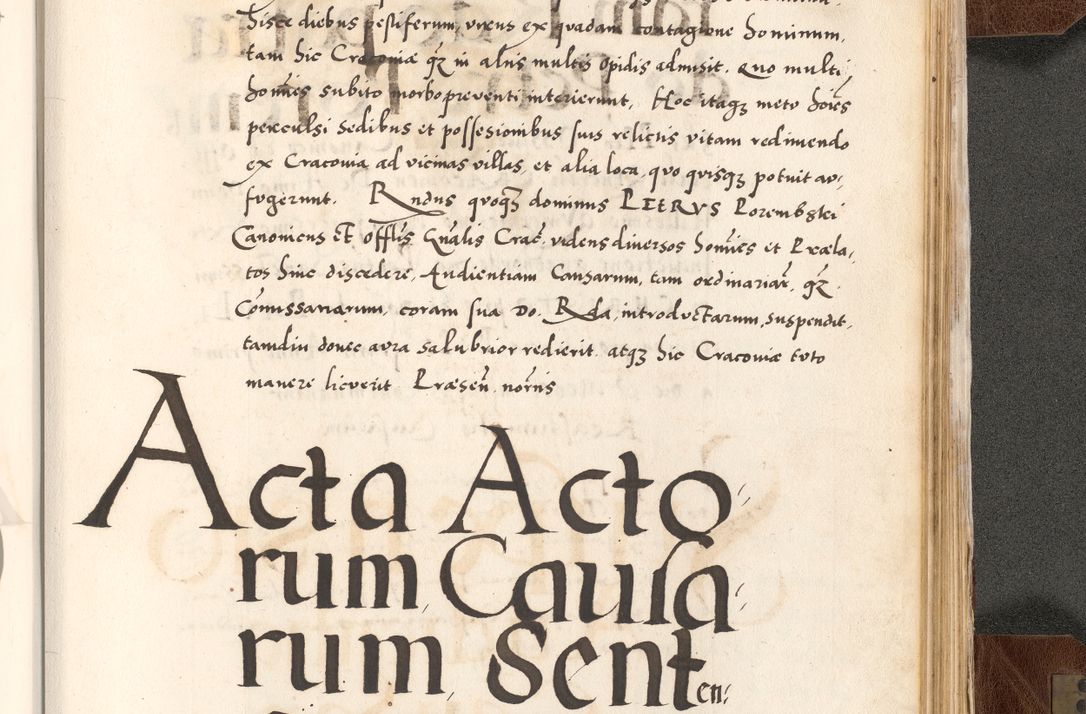 hisce diebus pestiferum, virus ex quadam contagione hominum,
tam hic Cracoviæ qz̃ in aliis multis opidis admisit. Quo multi
hom̃ies subito morbo preventi interierunt, Hoc itaqz metu hoĩes
perculsi sedibus et possesionibus suis relictis vitam redimendo
ex Cracovia ad vicinas villas, et alia loca, quo quisqz potuit au,
fugerunt. Rndus quoqz dominus PETRVS Porembski
Canonicus et Offłis Gñalis Crac̃. videns diversos hom̃ies et Præla,
tos hinc discedere, Audientiam Causarum, tam ordinariaꝝ, qz̃
Com̃issariarum, coram sua Do. Rda, introductarum, suspendit,
tamdiu donec aura salubrior redierit, atqz hic Cracoviæ tuto
manere licuerit Præseñ. nor̃nis
Acta Acto,
rum, Causa,
rum, Sent
en,